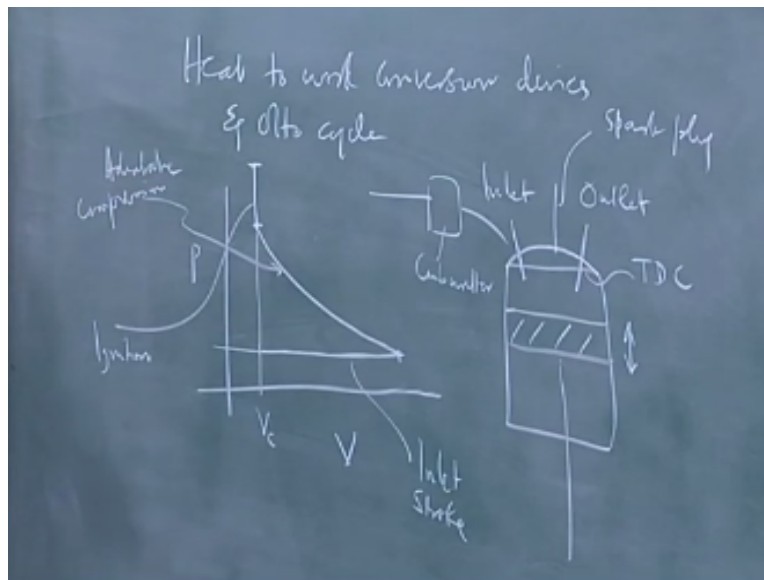 Heat to work conversion devices
& Otto cycle
Adiabatic
compression
P
Ignition
V_c
V
Inlet
Stroke
Spark plug
Inlet
Outlet
TDC